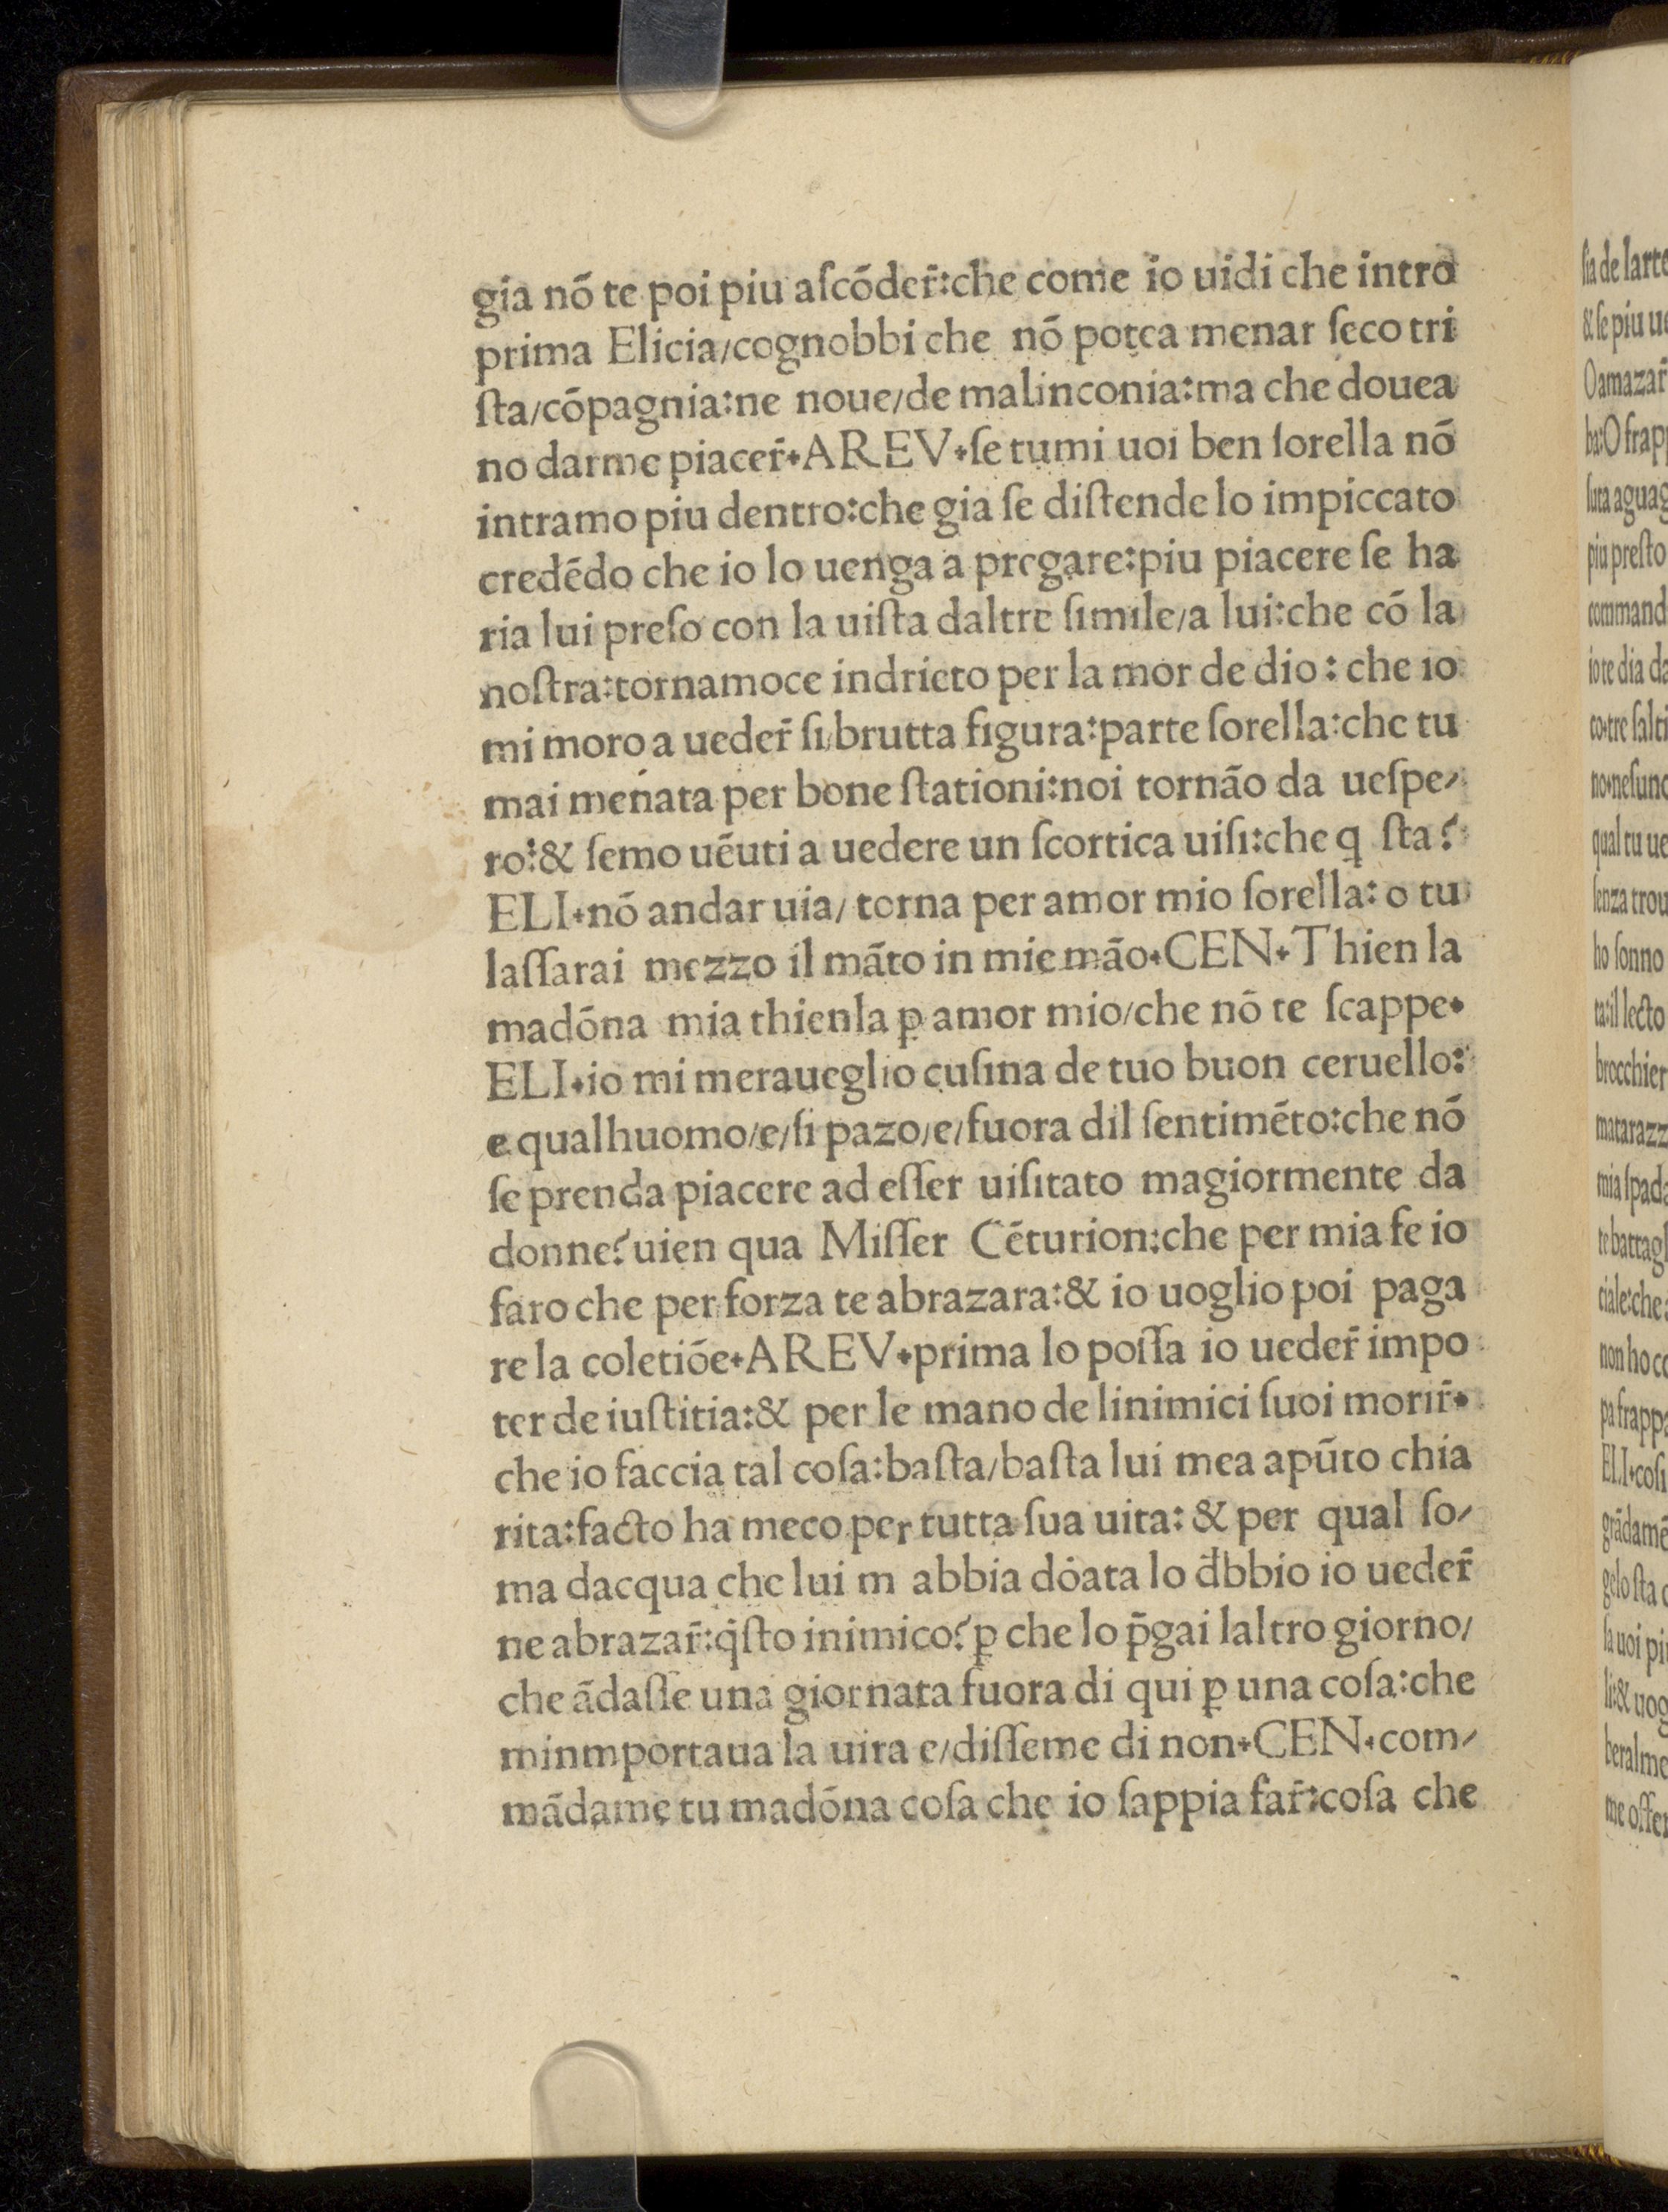 gia nō te poi piu aſcōder̄:che come io uidi che intro
prima Elicia/cognobbi che nō potea menar ſeco tri
ſta/cōpagnia:ne noue/de malinconia:ma che douea
no darme piacer̄.AREV.ſe tumi uoi ben ſorella nō
intramo piu dentro:che gia ſe diſtende lo impiccato
credēdo che io lo uenga a pregare:piu piacere ſe ha
ria lui preſo con la uiſta daltre ſimile/a lui:che cō la
noſtra:tornamoce indrieto per la mor de dio: che io
mi moro a ueder̄ ſi brutta figura:parte ſorella:che tu
mai menata per bone ſtationi:noi tornāo da ueſpe/
ro:& ſemo uēuti a uedere un ſcortica uiſi:che q ſta?
ELI.nō andar uia/ torna per amor mio ſorella: o tu
laſſarai mezzo il māto in mie māo.CEN.Thien la
madōna mia thienla ꝑ amor mio/che nō te ſcappe.
ELI.io mi meraueglio cuſina de tuo buon ceruello:
e qualhuomo/e/ſi pazo/e/fuora dil ſentimēto:che nō
ſe prenda piacere ad eſſer uiſitato magiormente da
donne?uien qua Miſſer Cēturion:che per mia fe io
faro che per forza te abrazara:& io uoglio poi paga
re la coletiōe.AREV.prima lo poſſa io ueder̄ impo
ter de iuſtitia:& per le mano de linimici ſuoi morir̄.
che io faccia tal coſa:baſta/baſta lui mea apūto chia
rita:facto ha meco per tutta ſua uita: & per qual ſo/
ma dacqua che lui m abbia dōata lo d̄bbio io ueder̄
ne abrazar̄:q̄ſto inimico?ꝑ che lo p̄gai laltro giorno/
che ādaſſe una giornata fuora di qui ꝑ una coſa:che
minmportaua la uita e/diſſeme di non.CEN.com/
mādame tu madōna coſa che io ſappia far̄:coſa che
ſia de larte
& ſe piu
Oamazar̄
ba:O frap
piu preſto
command
io te dia da
qual tu ue
ſenza trou
ho ſonno
ta:il lecto
brocchier
matarazz
mia ſpada
te battagl
ciale:che
non ho co
pa frappa
ELI.coſi
grādamē
gelo ſta
ſa uoi pi
li:& uog
beralme
me offer